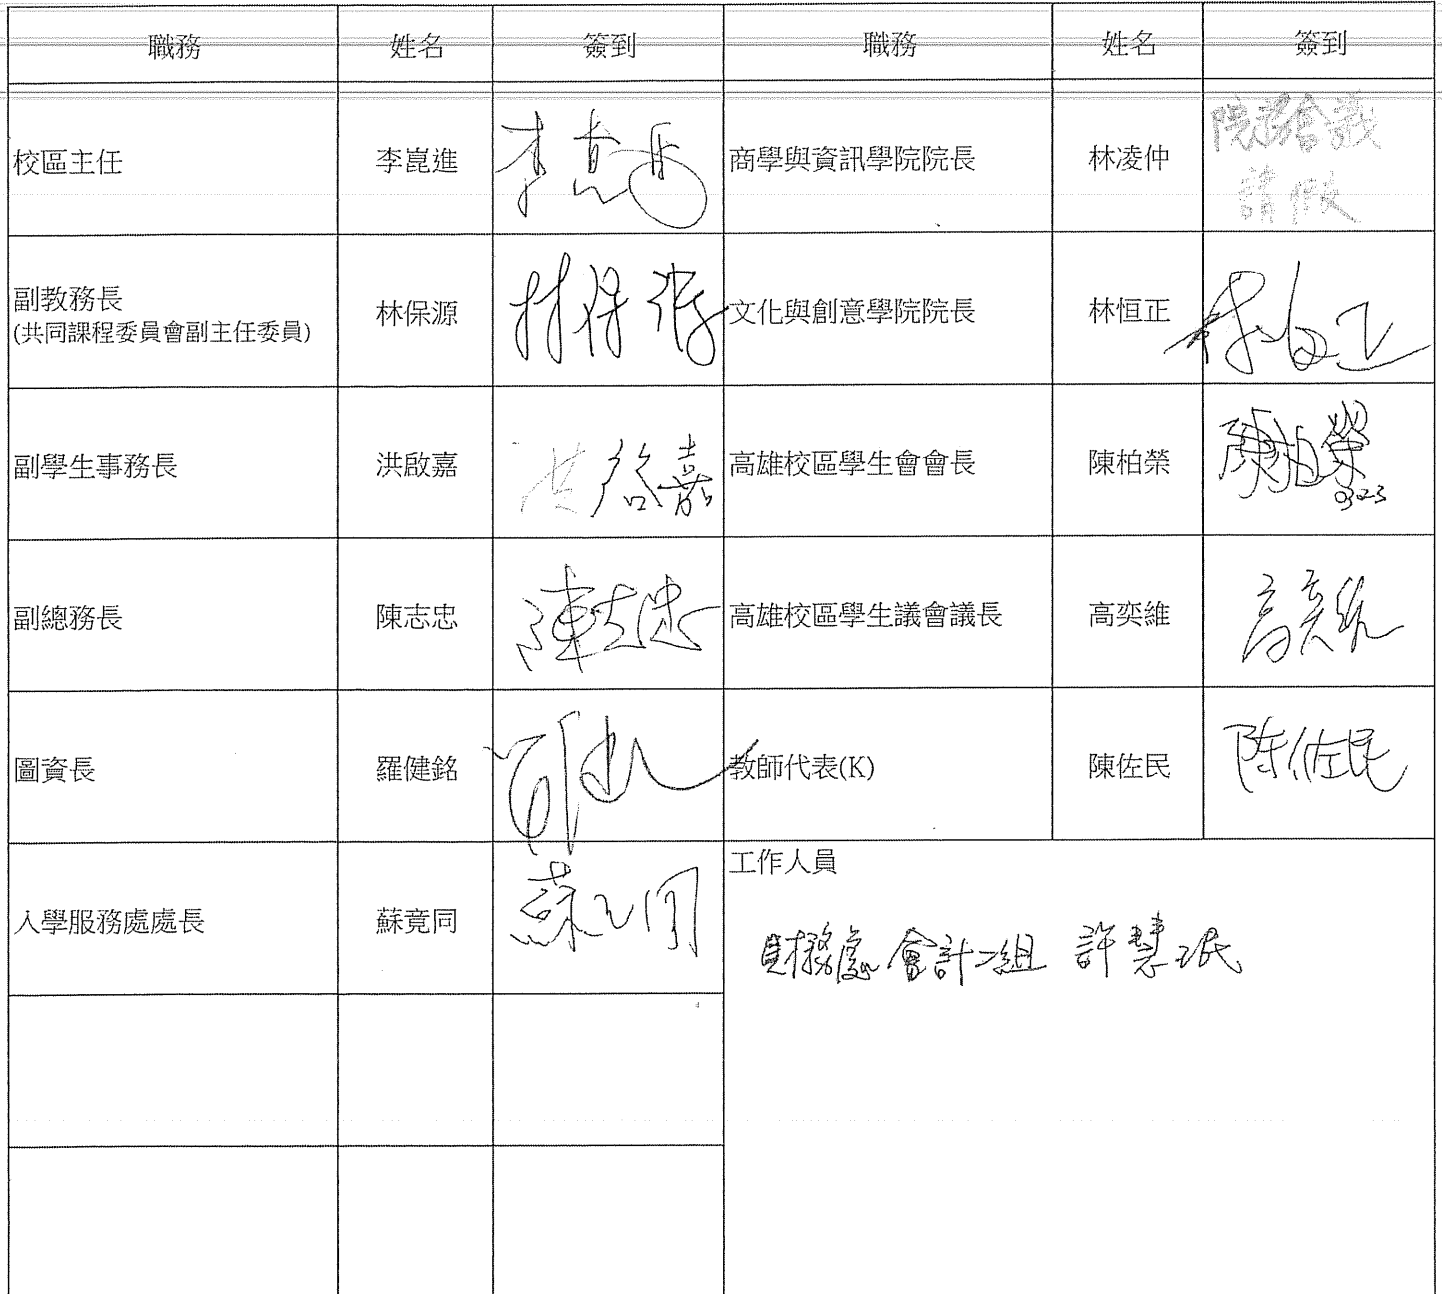 職務 姓名 簽到 職務 姓名 簽到
校區主任 李崑進 商學與資訊學院院長 林凌仲 院務會議
請假
副教務長
(共同課程委員會副主任委員) 林保源 林保源 文化與創意學院院長 林恒正 林恒正
副學生事務長 洪啟嘉 洪啟嘉 高雄校區學生會會長 陳柏榮 陳柏榮
0323
副總務長 陳志忠 陳志忠 高雄校區學生議會議長 高奕維 高奕維
圖資長 羅健銘 教師代表(K) 陳佐民 陳佐民
入學服務處處長 蘇竟同 工作人員
財務處 會計二組 許慧珉